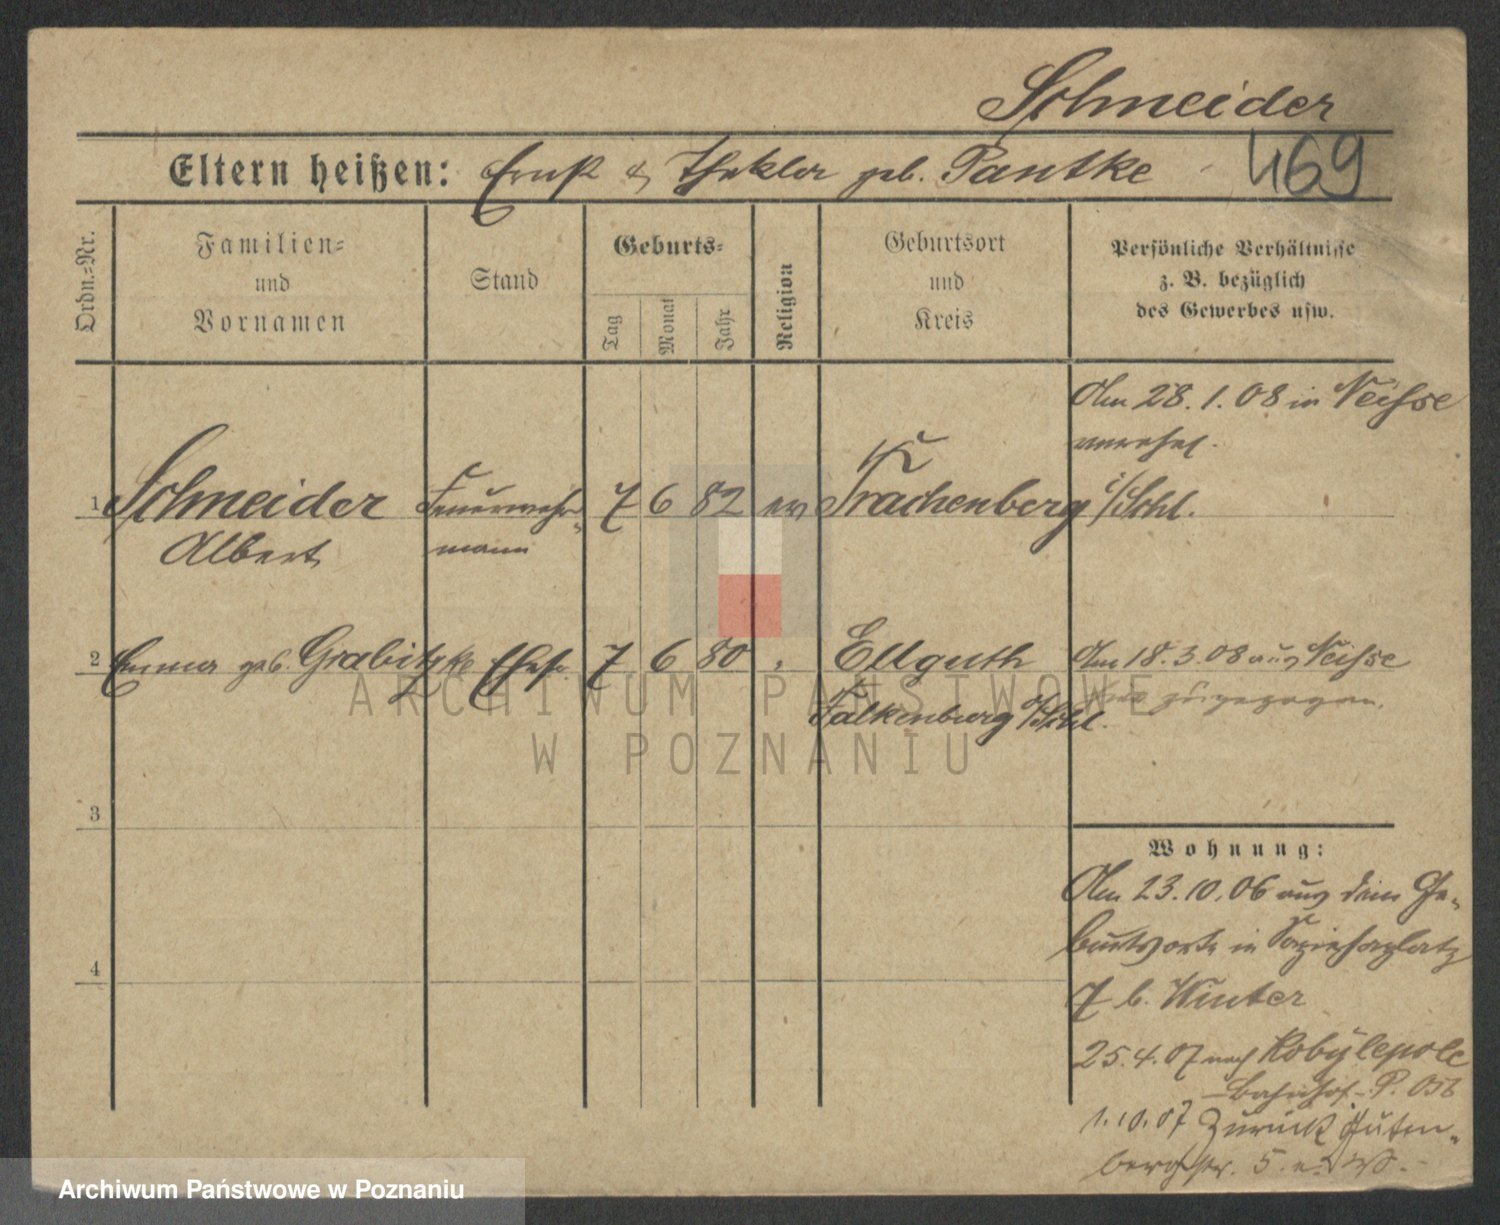 Schneider
Eltern heißen: Ernst & Thekla geb. Pantke
469
Ordn.=Nr.
Familien=
und
Vornamen
Stand
Geburts=
Tag
Monat
Jahr
Religion
Geburtsort
und
Kreis
Persönliche Verhältnisse
z. B. bezüglich
des Gewerbes usw.
Am 28. 1. 08 in Neisse
verehel.
1 Schneider Feuerwehr- 7 6 82 ev Trachenberg i/Schl.
Albert mann
2 Emma geb. Grabitzke Ehefr. 7 6 80 " Ellguth Am 18. 3. 08 aus Neisse
Falkenburg o/Schl. zugezogen.
3
4
Wohnung:
Am 23. 10. 06 aus dem Ge-
burtsorte in Sapiehaplatz
7 b. Winter
25. 4. 07 nach Kobylepole
Bahnhof P. Ost
1. 10. 07 Zurück Guten-
bergstr. 5.
ARCHIWUM PAŃSTWOWE
W POZNANIU
Archiwum Państwowe w Poznaniu